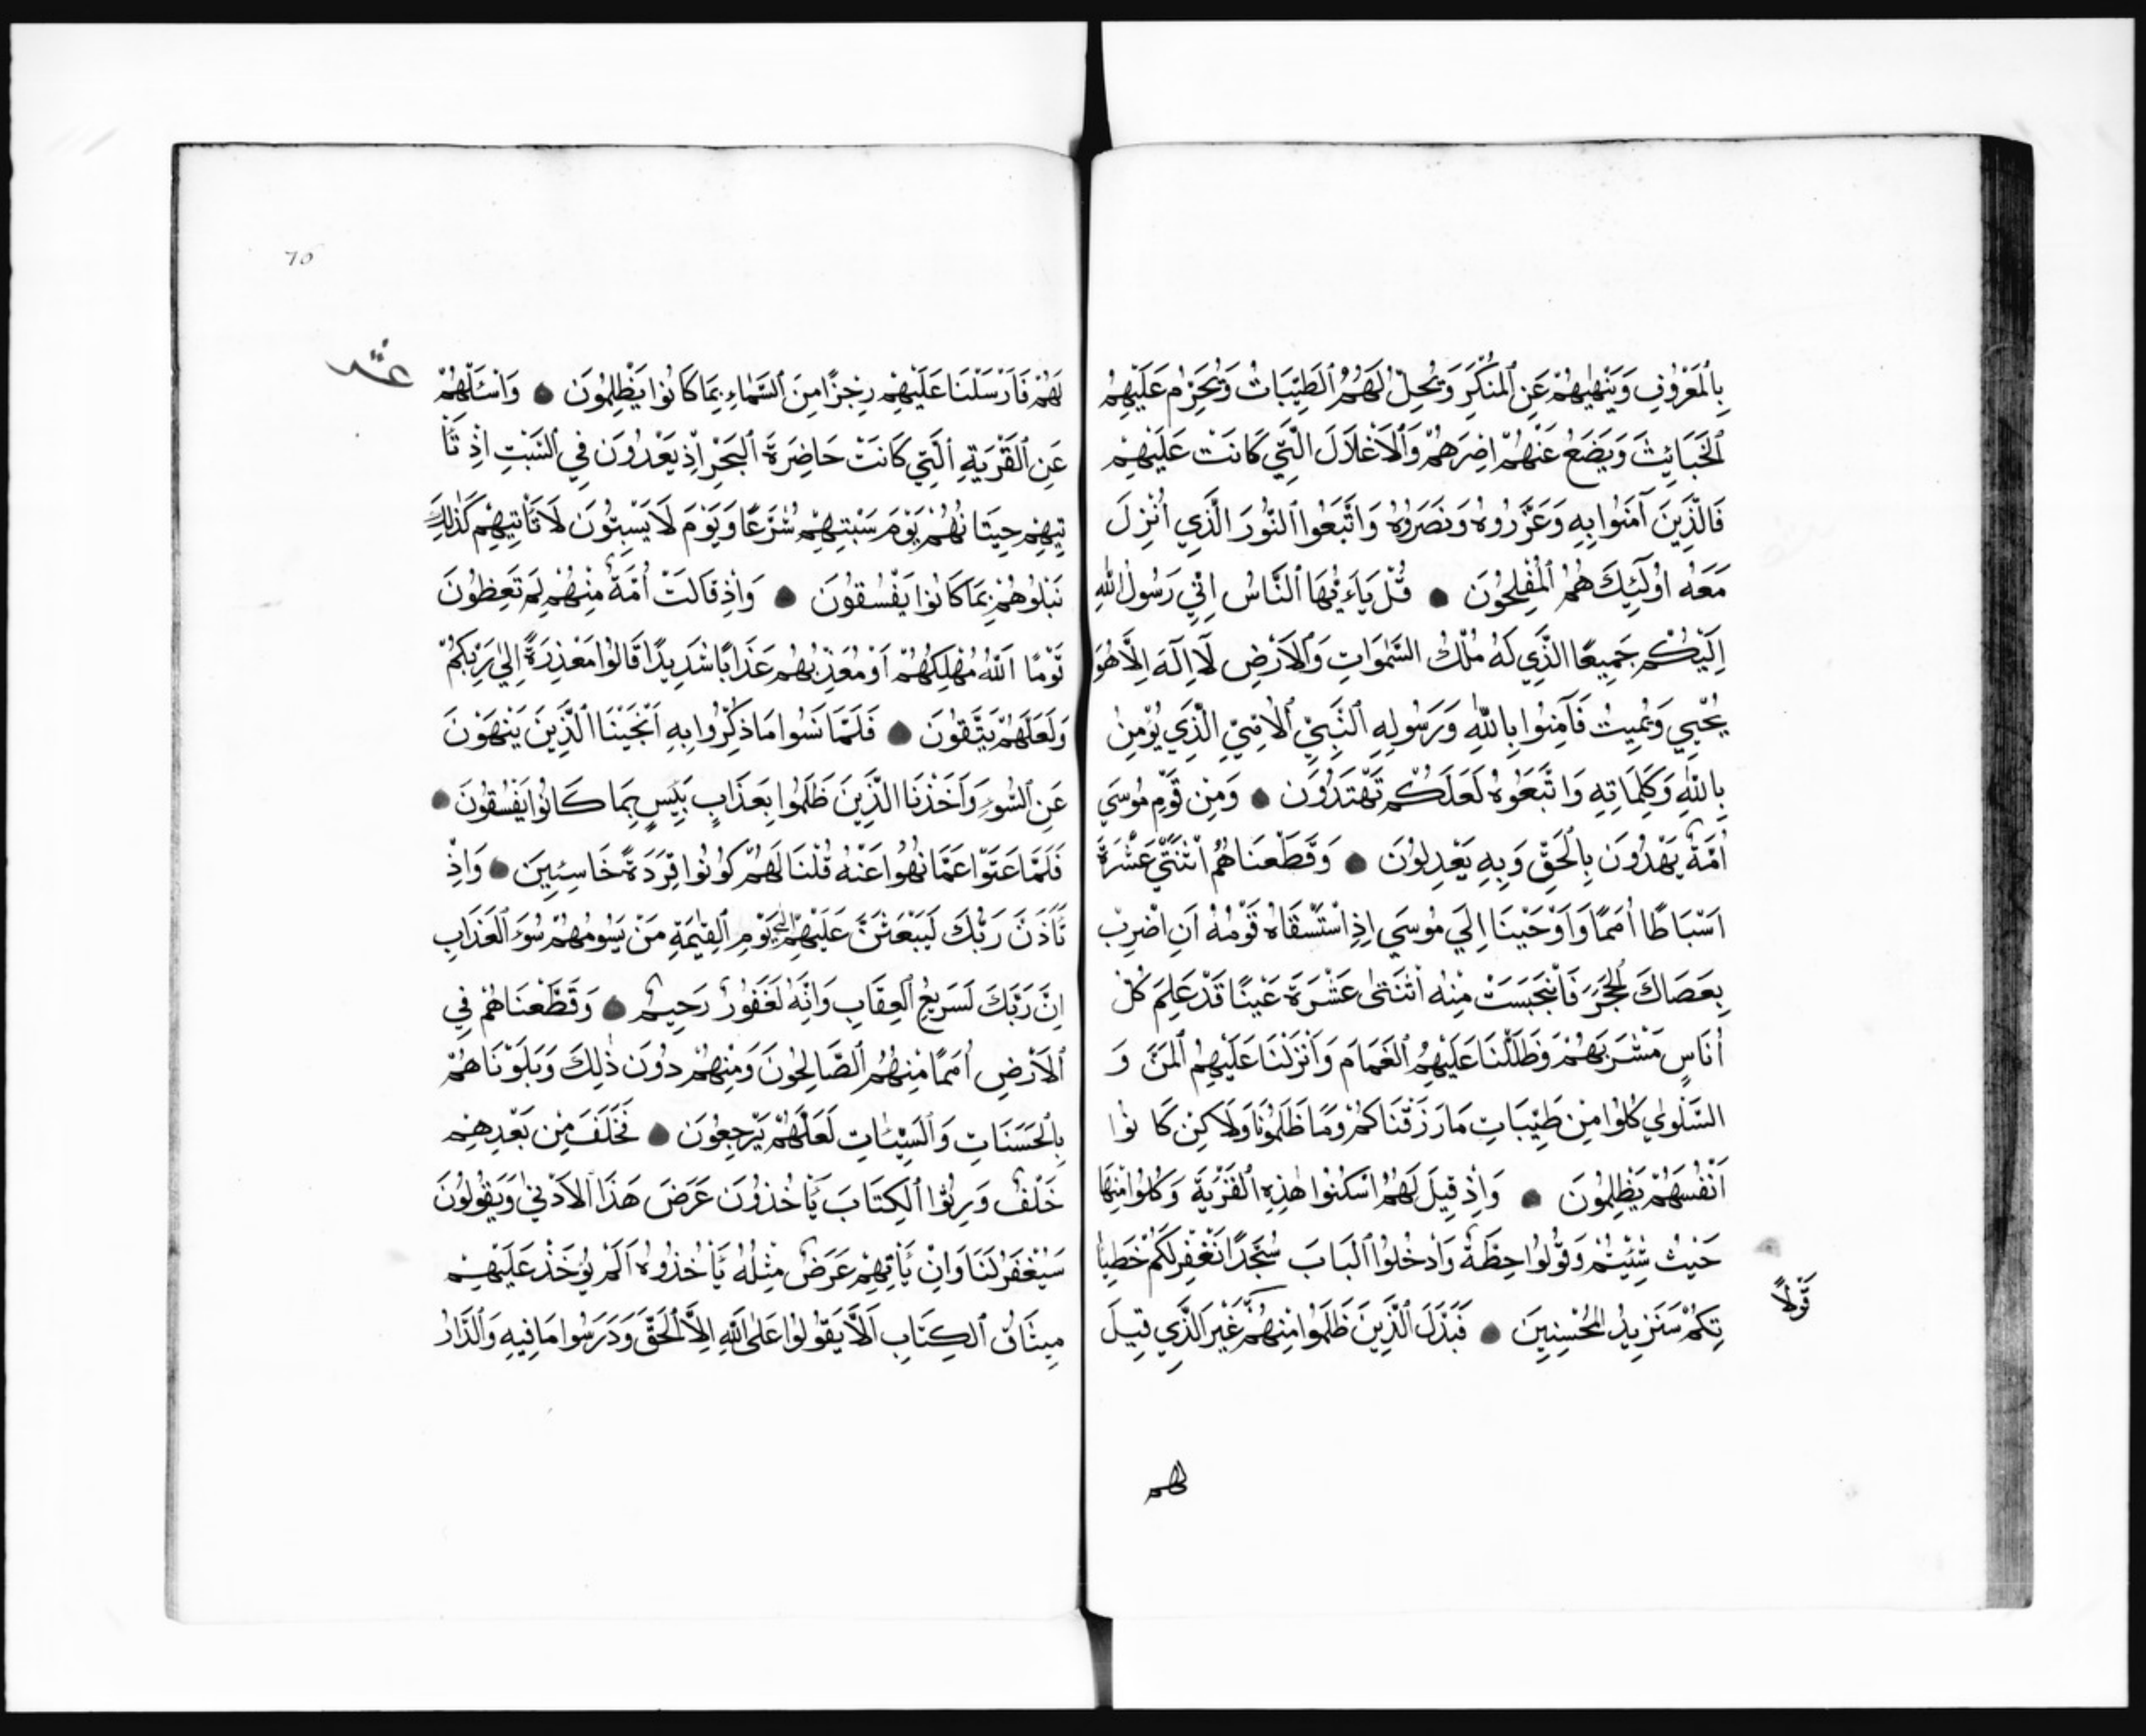 بِالْمَعْرُوفِ وَيَنْهٰيهُمْ عَنِ الْمُنْكَرِ وَيُحِلُّ لَهُمُ الطَّيِّبَاتِ وَيُحَرِّمُ عَلَيْهِمُ
الْخَبَائِثَ وَيَضَعُ عَنْهُمْ اِصْرَهُمْ وَالْاَغْلَالَ الَّتِي كَانَتْ عَلَيْهِمْ
فَالَّذِينَ آمَنُوا بِهِ وَعَزَّرُوهُ وَنَصَرُوهُ وَاتَّبَعُوا النُّورَ الَّذِي اُنْزِلَ
مَعَهُ اُولَئِكَ هُمُ الْمُفْلِحُونَ ● قُلْ يَاءَيُّهَا النَّاسُ اِنِّي رَسُولُ اللّٰهِ
اِلَيْكُمْ جَمِيعًا الَّذِي لَهُ مُلْكُ السَّمٰوَاتِ وَالْاَرْضِ لَا اِلٰهَ اِلَّا هُوَ
يُحْيِي وَيُمِيتُ فَآمِنُوا بِاللّٰهِ وَرَسُولِهِ النَّبِيِّ الْاُمِّيِّ الَّذِي يُؤْمِنُ
بِاللّٰهِ وَكَلِمَاتِهِ وَاتَّبَعُوهُ لَعَلَّكُمْ تَهْتَدُونَ ● وَمِنْ قَوْمِ مُوسَي
اُمَّةٌ يَهْدُونَ بِالْحَقِّ وَبِهِ يَعْدِلُونَ ● وَقَطَّعْنَاهُمُ اثْنَتَيْ عَشْرَةَ
اَسْبَاطًا اُمَمًا وَاَوْحَيْنَا اِلَي مُوسَي اِذِ اسْتَسْقَاهُ قَوْمُهُ اَنِ اضْرِبْ
بِعَصَاكَ الْحَجَرَ فَانْبَجَسَتْ مِنْهُ اثْنَتٰى عَشْرَةَ عَيْنًا قَدْ عَلِمَ كُلُّ
اُنَاسٍ مَشْرَبَهُمْ وَظَلَّلْنَا عَلَيْهِمُ الْغَمَامَ وَاَنْزَلْنَا عَلَيْهِمُ الْمَنَّ وَ
السَّلْوٰي كُلُوا مِنْ طَيِّبَاتِ مَا رَزَقْنَاكُمْ وَمَا ظَلَمُونَا وَلَاكِنْ كَانُوا
اَنْفُسَهُمْ يَظْلِمُونَ ● وَاِذْ قِيلَ لَهُمُ اسْكُنُوا هٰذِهِ الْقَرْيَةَ وَكُلُوا مِنْهَا
حَيْثُ شِئْتُمْ وَقُولُوا حِطَّةٌ وَادْخُلُوا الْبَابَ سُجَّدًا نَغْفِرْ لَكُمْ خَطِيأٰ
تِكُمْ سَنَزِيدُ الْمُحْسِنِينَ ● فَبَدَّلَ الَّذِينَ ظَلَمُوا مِنْهُمْ غَيْرَ الَّذِي قِيلَ
قَوْلًا
لهم
٦٥
عشر
لَهُمْ فَاَرْسَلْنَا عَلَيْهِمْ رِجْزًا مِنَ السَّمَاءِ بِمَا كَانُوا يَظْلِمُونَ ● وَاسْئَلْهُمْ
عَنِ الْقَرْيَةِ الَّتِي كَانَتْ حَاضِرَةَ الْبَحْرِ اِذْ يَعْدُونَ فِي السَّبْتِ اِذْ تَأْ
تِيهِمْ حِيتَانُهُمْ يَوْمَ سَبْتِهِمْ شُرَّعًا وَيَوْمَ لَا يَسْبِتُونَ لَا تَأْتِيهِمْ كَذٰلِكَ
نَبْلُوهُمْ بِمَا كَانُوا يَفْسُقُونَ ● وَاِذْ قَالَتْ اُمَّةٌ مِنْهُمْ لِمَ تَعِظُونَ
قَوْمًا اللّٰهُ مُهْلِكُهُمْ اَوْ مُعَذِّبُهُمْ عَذَابًا شَدِيدًا قَالُوا مَعْذِرَةً اِلٰي رَبِّكُمْ
وَلَعَلَّهُمْ يَتَّقُونَ ● فَلَمَّا نَسُوا مَا ذُكِّرُوا بِهِ اَنْجَيْنَا الَّذِينَ يَنْهَوْنَ
عَنِ السُّوءِ وَاَخَذْنَا الَّذِينَ ظَلَمُوا بِعَذَابٍ بَئِيسٍ بِمَا كَانُوا يَفْسُقُونَ ●
فَلَمَّا عَتَوْا عَمَّا نُهُوا عَنْهُ قُلْنَا لَهُمْ كُونُوا قِرَدَةً خَاسِئِينَ ● وَاِذْ
تَأَذَّنَ رَبُّكَ لَيَبْعَثَنَّ عَلَيْهِمْ اِلَي يَوْمِ الْقِيٰمَةِ مَنْ يَسُومُهُمْ سُوءَ الْعَذَابِ
اِنَّ رَبَّكَ لَسَرِيعُ الْعِقَابِ وَاِنَّهُ لَغَفُورٌ رَحِيمٌ ● وَقَطَّعْنَاهُمْ فِي
الْاَرْضِ اُمَمًا مِنْهُمُ الصَّالِحُونَ وَمِنْهُمْ دُونَ ذٰلِكَ وَبَلَوْنَاهُمْ
بِالْحَسَنَاتِ وَالسَّيِّئَاتِ لَعَلَّهُمْ يَرْجِعُونَ ● فَخَلَفَ مِنْ بَعْدِهِمْ
خَلْفٌ وَرِثُوا الْكِتَابَ يَأْخُذُونَ عَرَضَ هَذَا الْاَدْنٰي وَيَقُولُونَ
سَيُغْفَرُ لَنَا وَاِنْ يَأْتِهِمْ عَرَضٌ مِثْلُهُ يَأْخُذُوهُ اَلَمْ يُؤْخَذْ عَلَيْهِمْ
مِيثَاقُ الْكِتَابِ اَلَّا يَقُولُوا عَلَى اللّٰهِ اِلَّا الْحَقَّ وَدَرَسُوا مَا فِيهِ وَالدَّارُ